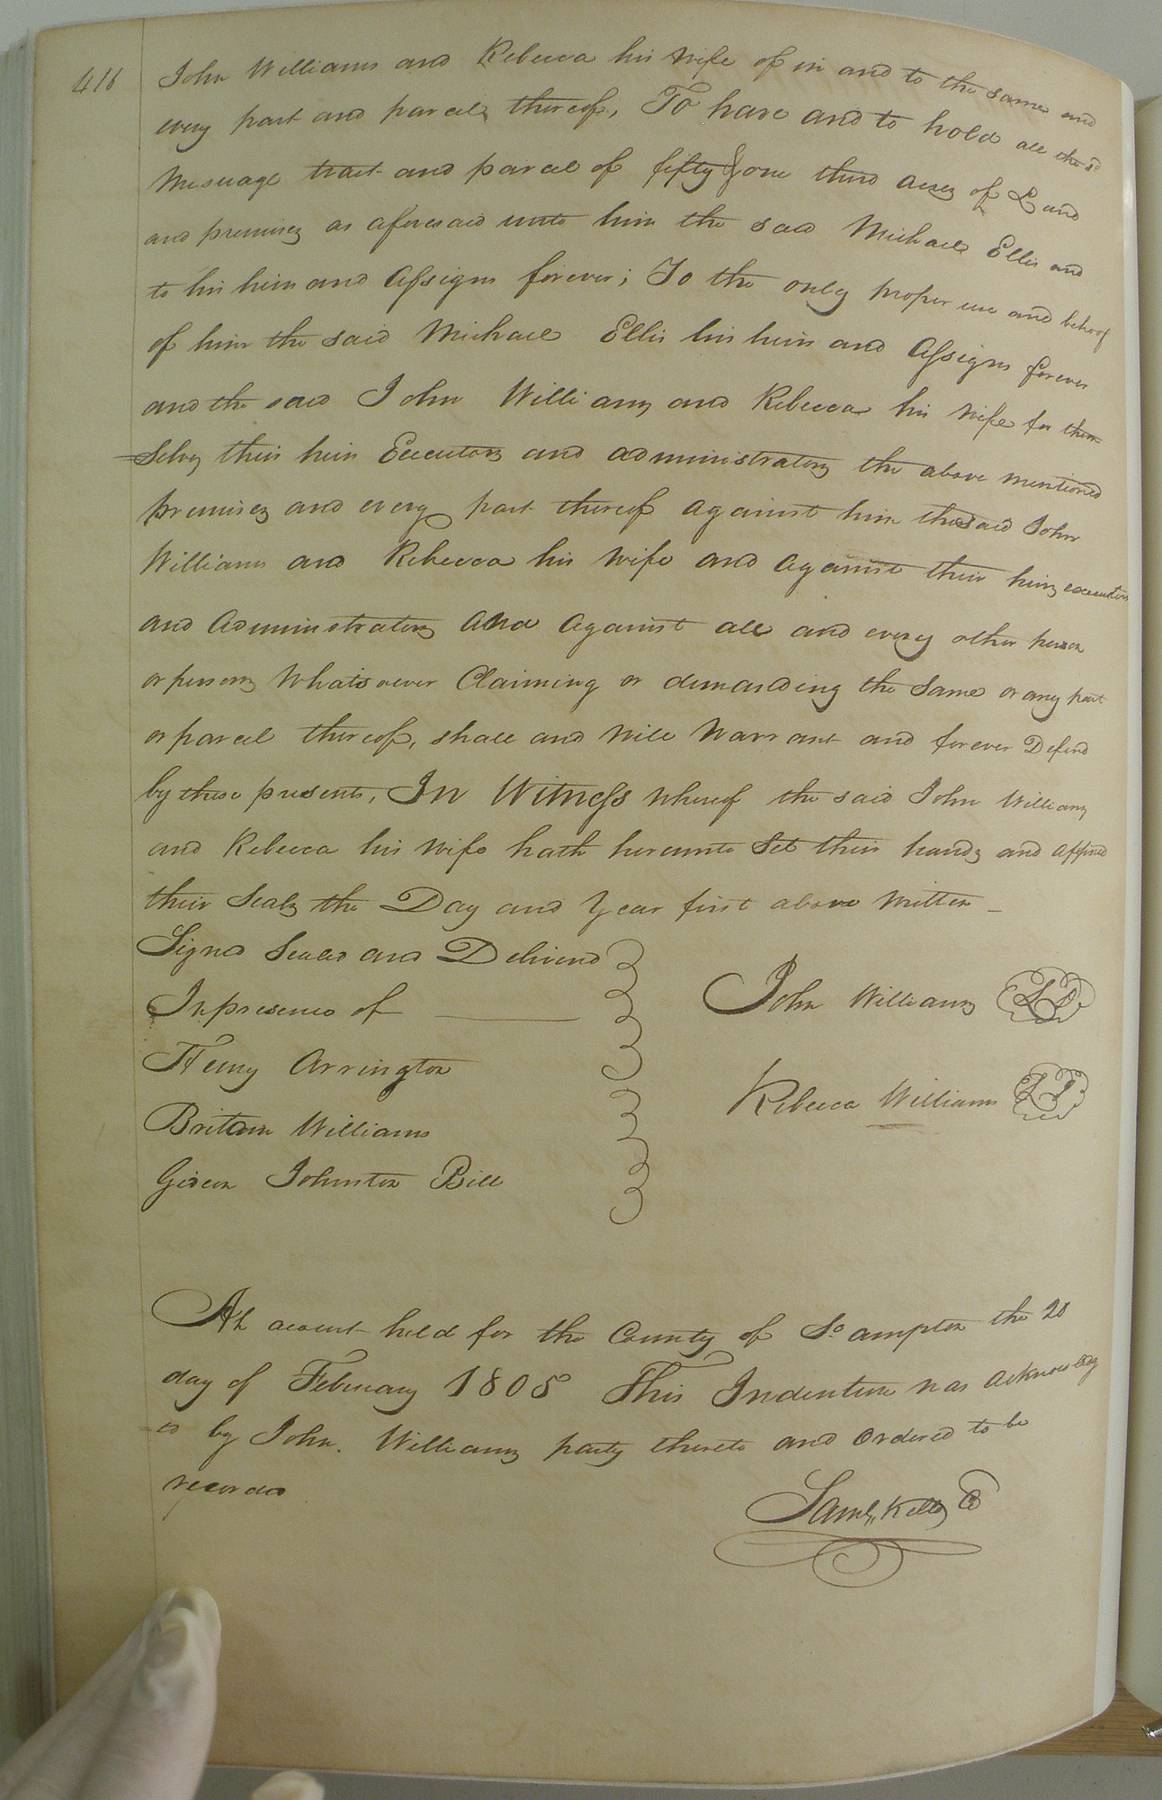 416
John Williams and Rebecca his wife of in and to the same and
every part and parcel thereof, To have and to hold all the sd
Messuage tract and parcel of fifty & one third acres of Land
and premises as aforesaid unto him the said Michael Ellis and
to his heirs and Assigns forever; To the only proper use and behoof
of him the said Michael Ellis his heirs and Assigns forever
and the said John Williams and Rebecca his wife for them
Selves their heirs Executors and administrators the above mentioned
premises and every part thereof against him the said John
Williams and Rebecca his wife and against their heirs executors
and Administrators and against all and every other person
or persons Whatsoever Claiming or demanding the Same or any part
or parcel thereof, shall and will Warrant and forever Defend
by these presents, In Witness whereof the said John Williams
and Rebecca his wife hath hereunto Set their hands and affixed
their Seals the Day and Year first above written
Signed Sealed and Delivered
In presence of John Williams LS
Henry Arrington
Britain Williams Rebecca Williams LS
Gideon Johnston Bill
At a court held for the County of So.ampton the 20
day of February 1805 This Indenture was acknowledg
ed by John Williams party thereto and ordered to be
recorded
Saml. Kello C